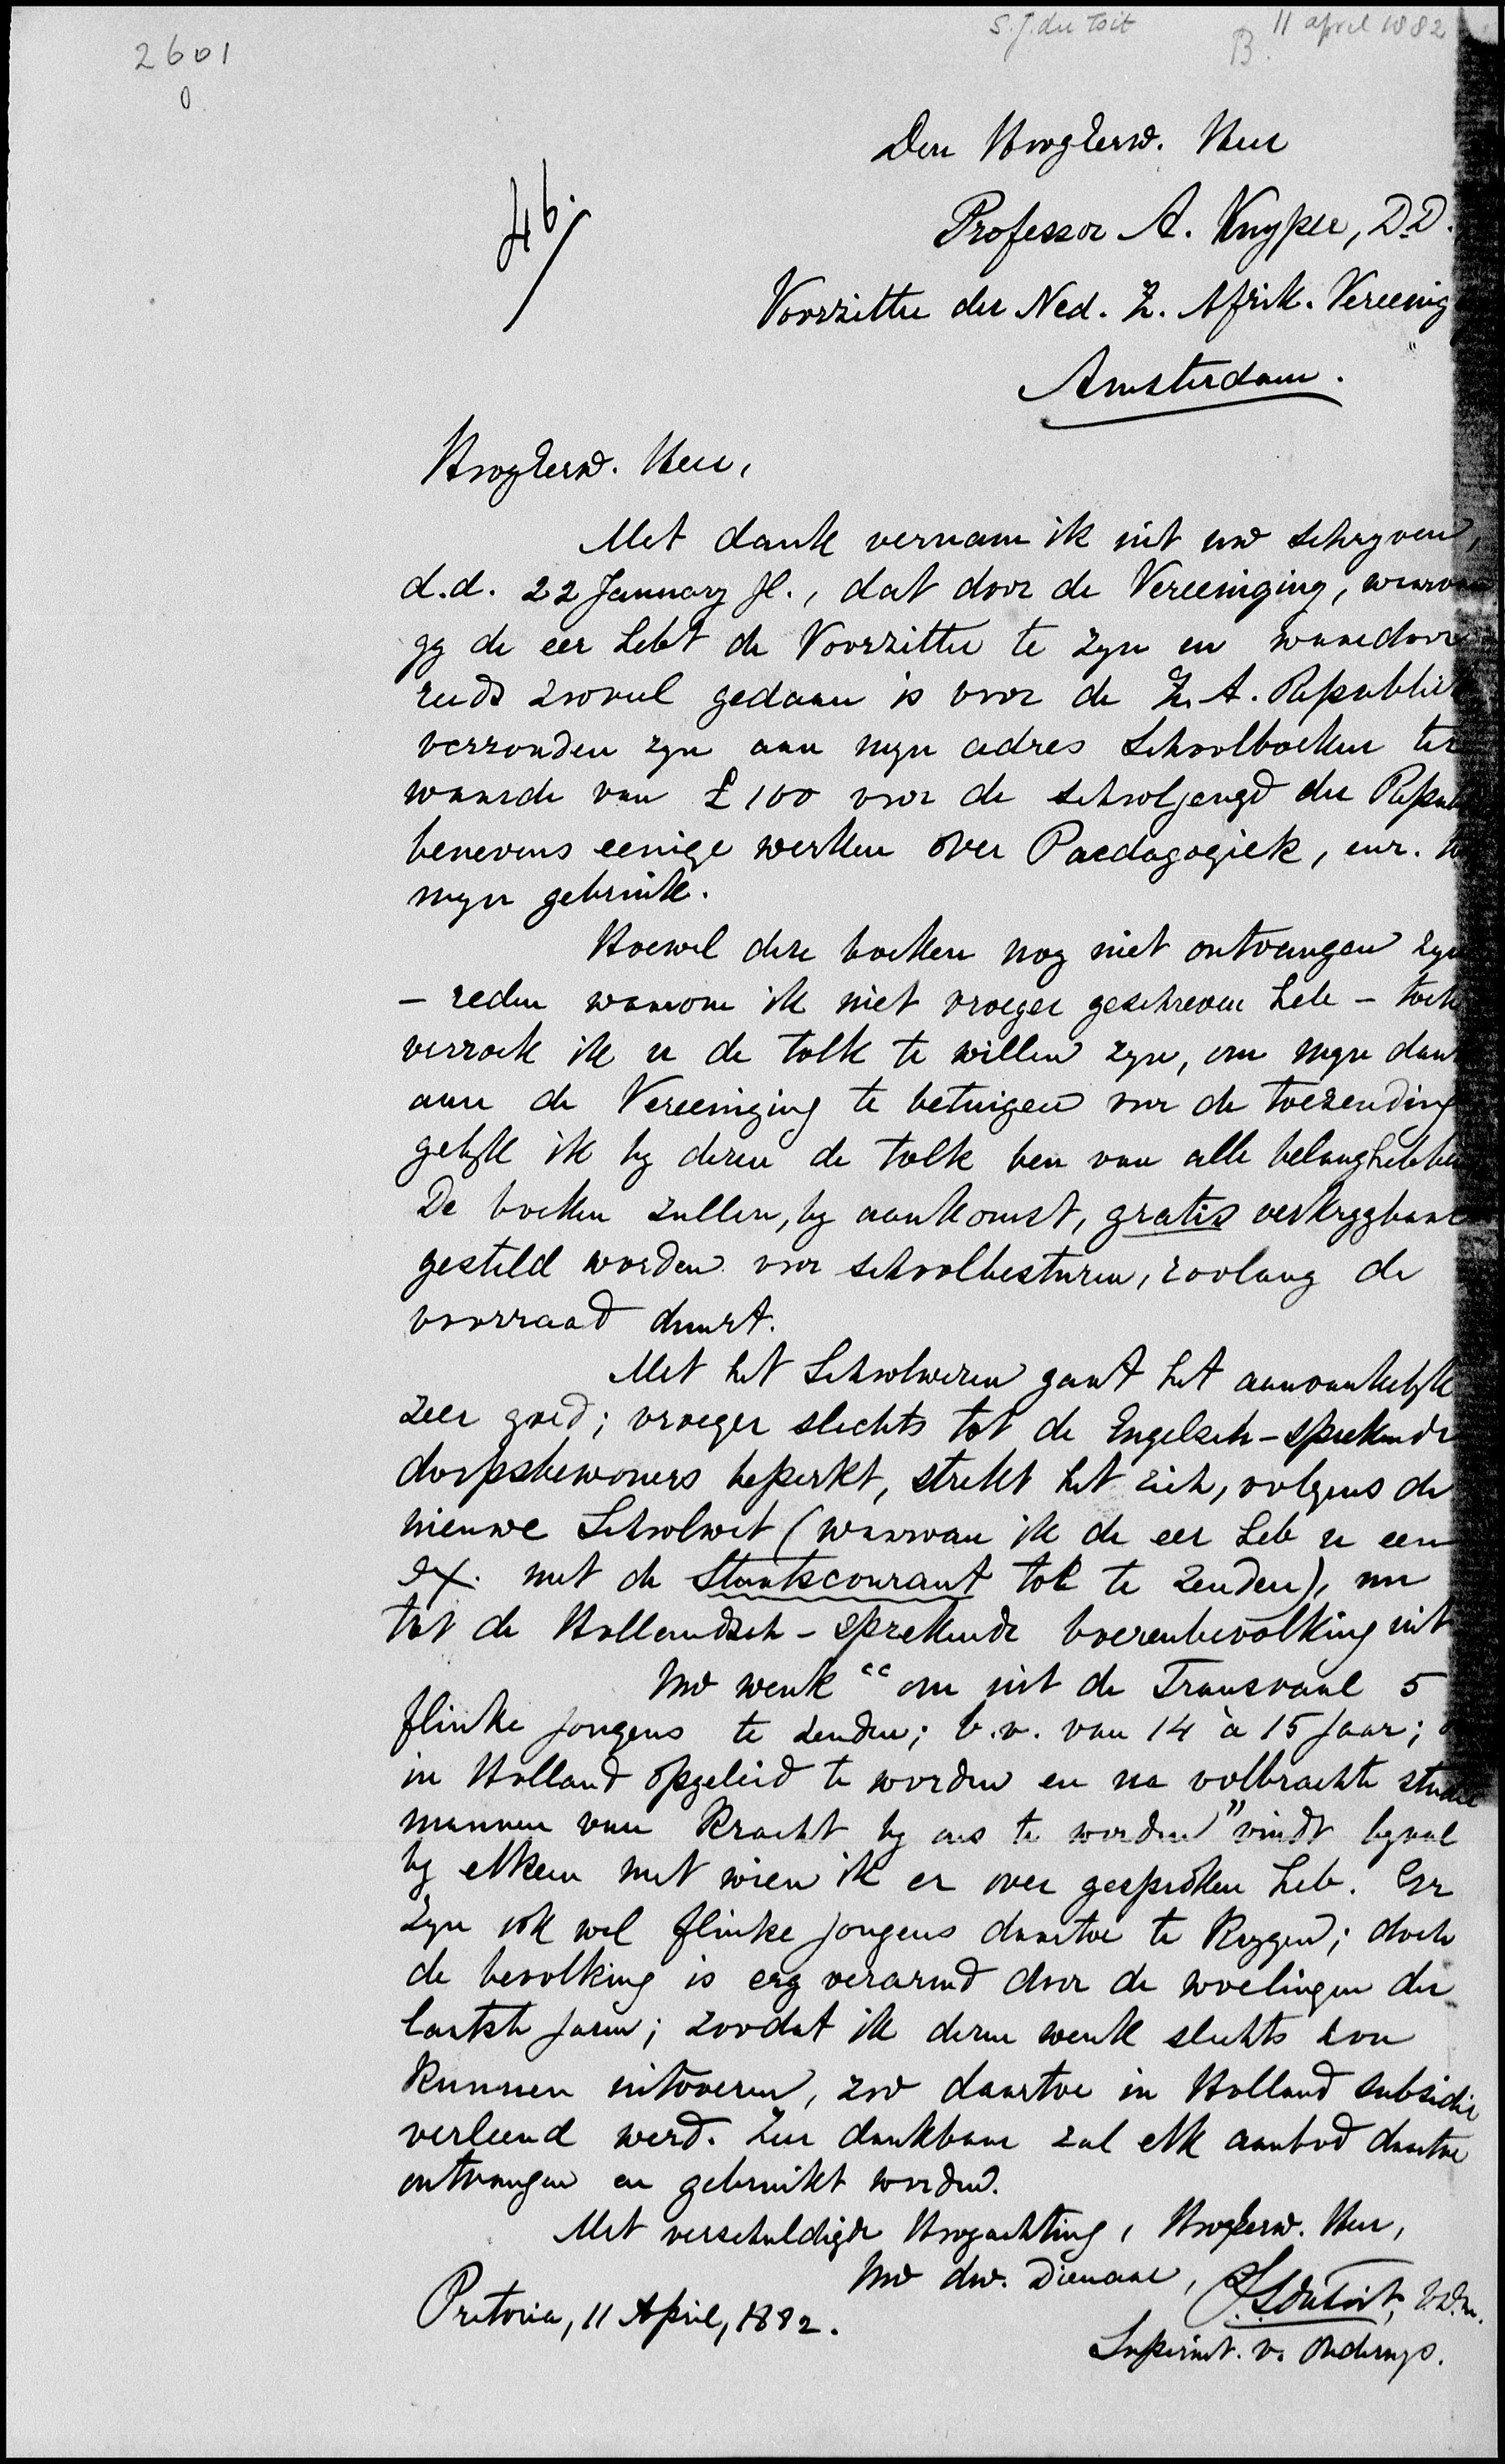 S.J. du Toit
B. 11 april 1882
2601
0
46.
Den HoogEerw. Heer
Professor A. Kuyper, D.D.
Voorzitter der Ned. Z. Afrik. Vereenig
Amsterdam.
HoogEerw. Heer,
Met dank vernam ik uit uw schryven,
d.d. 22 January jl., dat door de Vereeniging, waarvan
gy de eer hebt de Voorzitter te zyn en waardoor
reeds zooveel gedaan is voor de Z. A. Republiek
verzonden zyn aan myn adres Schoolboeken ter
waarde van £100 voor de schooljeugd der Repub
benevens eenige werken over Paedagogiek, enz.
myn gebruik.
Hoewel deze boeken nog niet ontvangen zyn
- reden waarom ik niet vroeger geschreven heb - toch
verzoek ik u de tolk te willen zyn, om myn dank
aan de Vereeniging te betuigen voor de toezending
gelyk ik by dezen de tolk ben van alle belanghebben
De boeken zullen, by aankomst, gratis verkrygbaar
gesteld worden voor schoolbesturen, zoolang de
voorraad duurt.
Met het Schoolwezen gaat het aanvankelyk
zeer goed; vroeger slechts tot de Engelsch-sprekende
dorpsbewoners beperkt, strekt het zich, volgens de
nieuwe Schoolwet (waarvan ik de eer heb u een
ex. met de Staatscourant toe te zenden), nu
tot de Hollandsch-sprekende boerenbevolking uit
Uw wenk "om uit de Transvaal 5
flinke jongens te zenden; b.v. van 14 à 15 jaar;
in Holland opgeleid te worden en na volbrachte studie
mannen van kracht by ons te worden" vindt byval
by elkeen met wien ik er over gesproken heb. Er
zyn ook wel flinke jongens daartoe te krygen; doch
de bevolking is erg verarmd door de woelingen der
laatste jaren; zoodat ik dezen wenk slechts zou
kunnen uitvoeren, zoo daartoe in Holland subsidie
verleend werd. Zeer dankbaar zal elk aanbod daartoe
ontvangen en gebruikt worden.
Met verschuldigde Hoogachting, HoogEerw. Heer,
Uw dw. Dienaar, S.J. du Toit, V.D.M.
Pretoria, 11 April, 1882.
Superint. v. Onderwys.